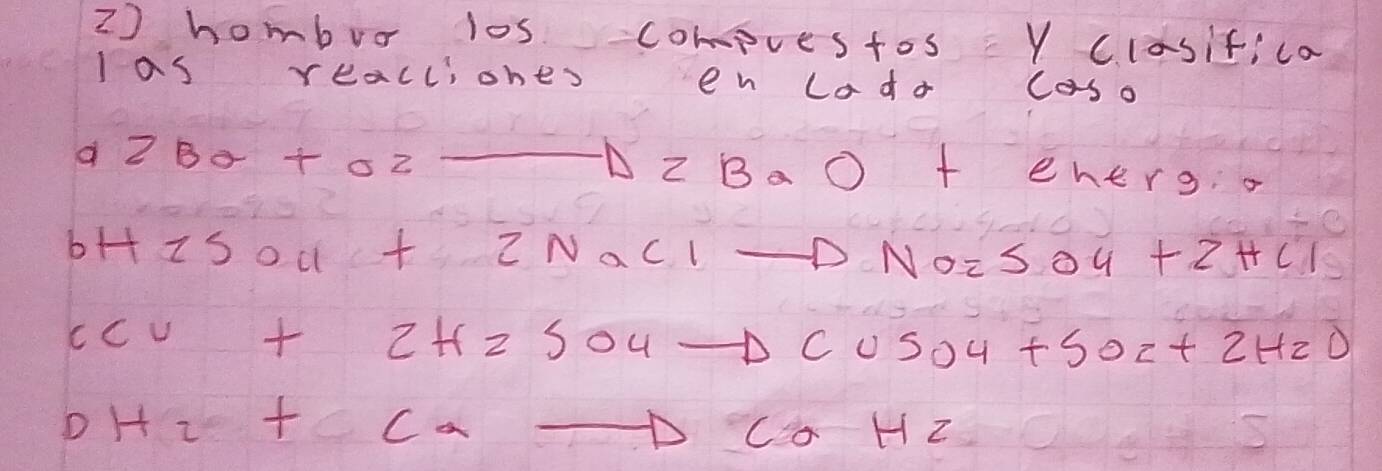 2) nombra los compuestos y clasifica
las reacciones en cada caso
a 2Ba + O2 → 2BaO + energia
b H2SO4 + 2NaCl → Na2SO4 + 2HCl
c Cu + 2H2SO4 → CuSO4 + SO2 + 2H2O
D H2 + Ca → CaH2